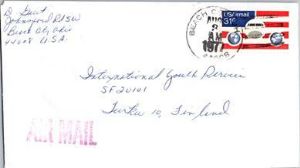 D. Gant
Johnsford Rd SW
Beach City, Ohio
44608 U.S.A.
BEACH C
AUG
3
AM
1977
44608
US Airmail
31¢
International Youth Service
SF 20101
Turku 10, Finland
AIR MAIL